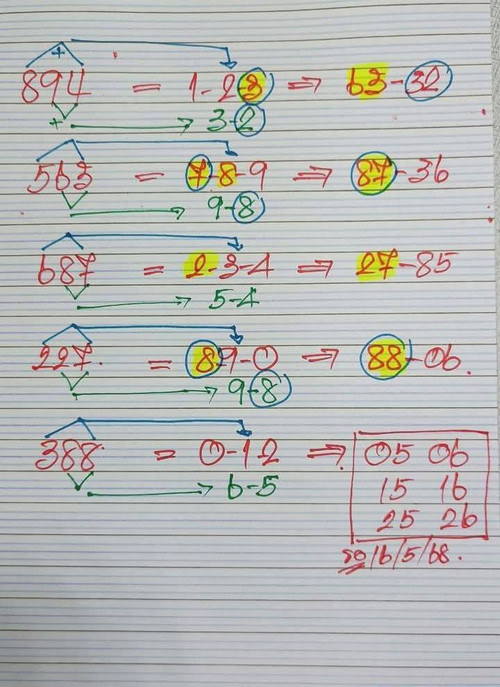 +
894 = 1-23 ⇒ 63-32
+ → 3-2
563 = 7-8-9 ⇒ 87-36
→ 9-8
687 = 2-3-4 ⇒ 27-85
→ 5-4
227. = 89-0 ⇒ 88-06.
→ 9-8
388 = 0-12 ⇒ 05 06
→ 6-5 15 16
25 26
/16/5/68.